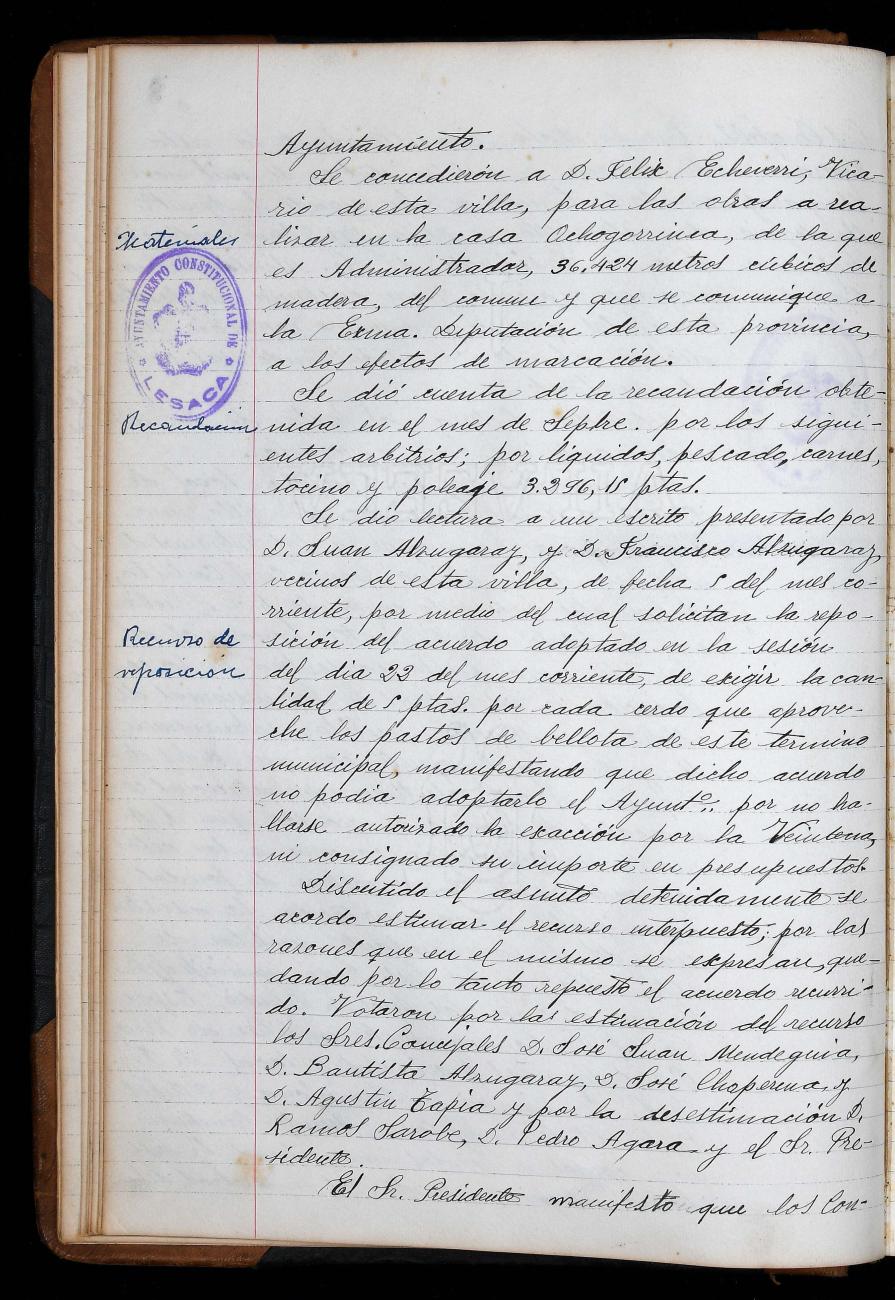 Ayuntamiento.
Se concedierón a D. Felix Echeverri, Vica-
rio de esta villa, para las obras a rea-
Materiales
lizar en la casa Ochogorrinea, de la que
es Administrador, 36.424 metros cúbicos de
madera, del comun y que se comunique a
la Exma. Diputación de esta provincia,
a los efectos de marcación.
AYUNTAMIENTO CONSTITUCIONAL DE
LESACA
Se dió cuenta de la recaudación obte-
Recaudación
nida en el mes de Septre. por los sigui-
entes arbitrios; por liquidos, pescado, carnes,
tocino y poleaje 3.296,15 ptas.
Se dio lectura a un escrito presentado por
D. Juan Alzugaray, y D. Francisco Alzugaray,
vecinos de esta villa, de fecha 5 del mes co-
rriente, por medio del cual solicitan la repo-
Recurso de
reposicion
sición del acuerdo adoptado en la sesión
del dia 22 del mes corriente, de exigir la can-
tidad de 5 ptas. por cada cerdo que aprove-
che los pastos de bellota de este termino
municipal, manifestando que dicho acuerdo
no podia adoptarlo el Ayuntº. por no ha-
llarse autorizado la exacción por la Veintena,
ni consignado su importe en presupuestos.
Discutido el asunto detenidamente se
acordo estimar el recurso interpuesto; por las
razones que en el mismo se expresan, que-
dando por lo tanto repuesto el acuerdo recurri-
do. Votaron por las estimación del recurso
los Sres. Concejales D. José Juan Mendeguia,
D. Bautista Alzugaray, D. José Choperena, y
D. Agustin Tapia y por la desestimación D.
Ramos Sarobe, D. Pedro Agara y el Sr. Pre-
sidente.
El Sr. Presidente manifesto que los Con-